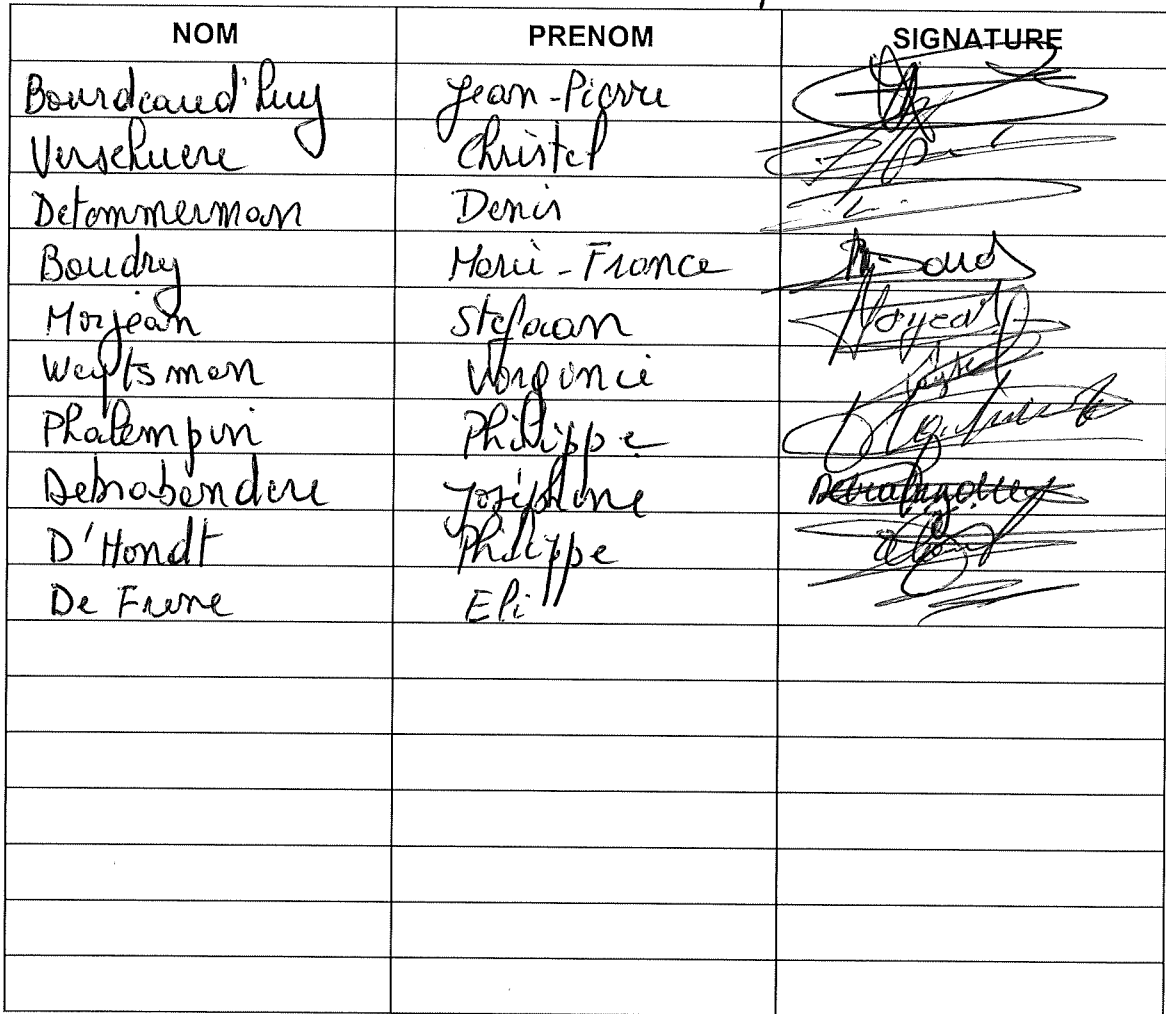 NOM PRENOM SIGNATURE
Bourdeaud'huy Jean-Pierre
Verschuere Christel
Detammerman Denis
Boudry Marie-France
Morjean Stefaan
Weytsman
Phalempin Philippe
Debrabandere Joséphine Debrabandere
D'Hondt Philippe
De Frene Eli